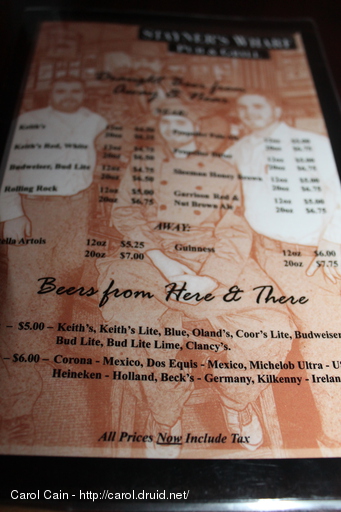 STAYNER'S WHARF
PUB & GRILL
Draught Beer from
Away & Near
Keith's 20oz
Keith's Red, White 12oz $4.75 12oz $5.00
20oz $6.50 20oz $6.75
Budweiser, Bud Lite 12oz $4.75 Sleeman Honey Brown 12oz $5.00
20oz $6.50 20oz $6.75
Rolling Rock 12oz $5.00 Garrison Red & 12oz $5.00
20oz $6.75 Nut Brown Ale 20oz $6.75
AWAY:
ella Artois 12oz $5.25 Guinness 12oz $6.00
20oz $7.00 20oz $7.75
Beers from Here & There
– $5.00 – Keith's, Keith's Lite, Blue, Oland's, Coor's Lite, Budweiser
Bud Lite, Bud Lite Lime, Clancy's.
– $6.00 – Corona - Mexico, Dos Equis - Mexico, Michelob Ultra - U
Heineken - Holland, Beck's - Germany, Kilkenny - Irelan
All Prices Now Include Tax
Carol Cain - http://carol.druid.net/